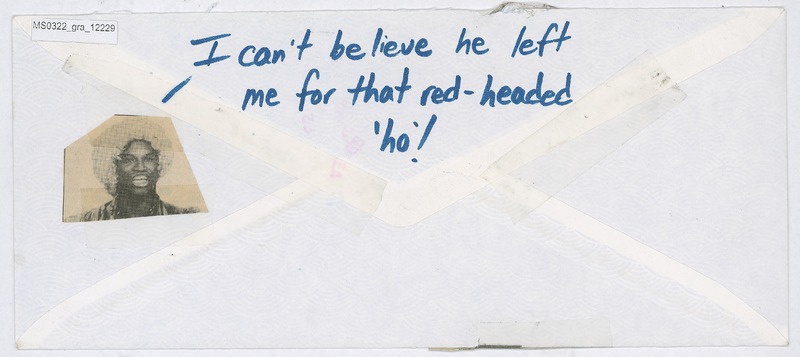 MS0322_gra_12229
I can't believe he left
me for that red-headed
'ho'!